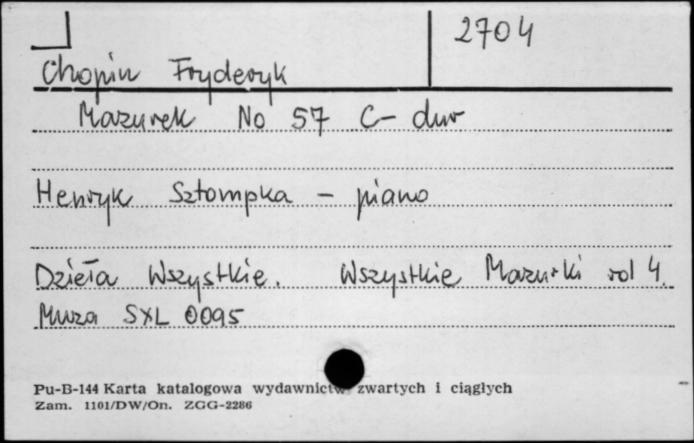 2704
Chopin Fryderyk
Mazurek No 57 C-dur
Henryk Sztompka - piano
Dzieła Wszystkie. Wszystkie Mazurki vol 4.
Muza SXL 0095
Pu-B-144 Karta katalogowa wydawnictw zwartych i ciągłych
Zam. 1101/DW/On. ZGG-2286